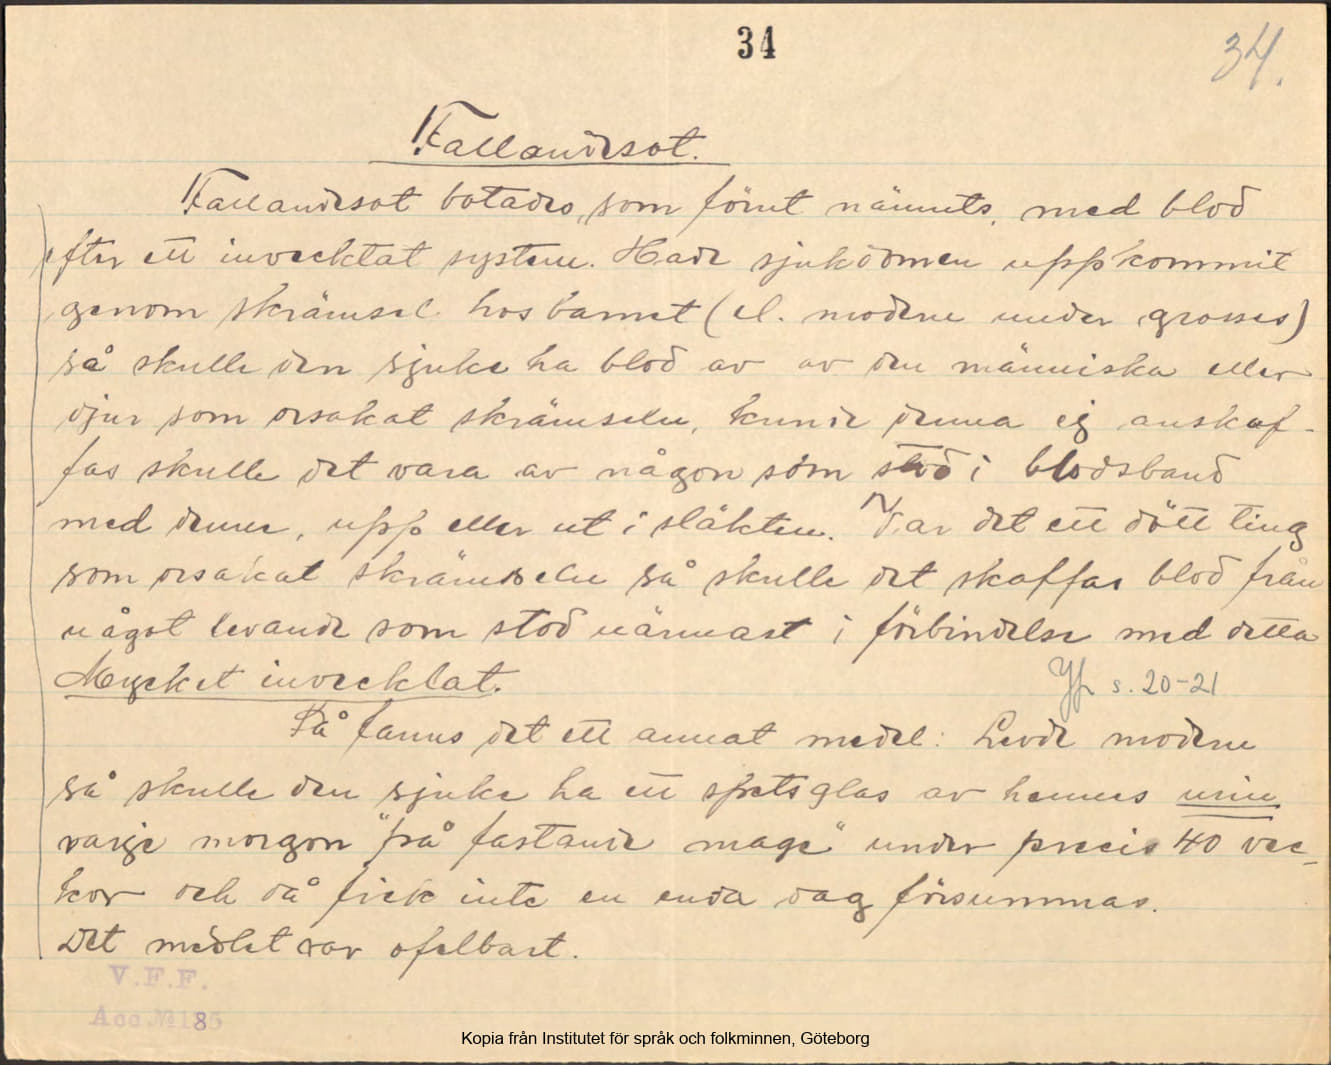 34
34.
Fallandesot.
Fallandesot botades, som förut nämnts, med blod
efter ett invecklat system. Hade sjukdomen uppkommit
genom skrämsel hos barnet (el. modern under grosses)
så skulle den sjuke ha blod av av den människa eller
djur som orsakat skrämseln, kunde denna ej anskaf-
fas skulle det vara av någon som stod i blodsband
med denne, upp eller ut i släkten. Var det ett dött ting
som orsakat skrämseln så skulle det skaffas blod från
något levande som stod närmast i förbindelse med detta
Mycket invecklat.
s. 20-21
Så fanns det ett annat medel: Levde modern
så skulle den sjuke ha ett spetsglas av hennes urin
varje morgon "på fastande mage" under precis 40 vec-
kor och då fick inte en enda dag försummas.
Det medlet var ofelbart.
V.F.F.
Acc. № 185
Kopia från Institutet för språk och folkminnen, Göteborg